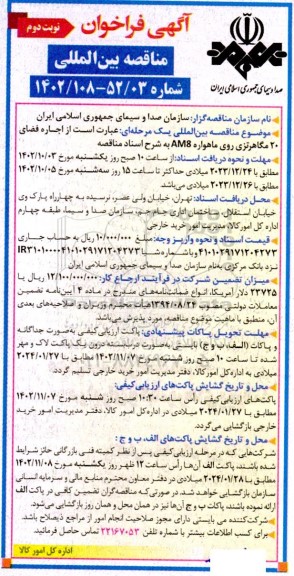 آگهی فراخوان
نوبت دوم
مناقصه بین‌المللی
شماره ۵۲/۰۳-۱۴۰۲/۱۰۸
صدا و سیمای جمهوری اسلامی ایران
نام سازمان مناقصه‌گزار: سازمان صدا و سیمای جمهوری اسلامی ایران
موضوع مناقصه بین‌المللی یک مرحله‌ای: عبارت است از اجاره فضای
۲۰ مگاهرتزی روی ماهواره AM8 به شرح اسناد مناقصه
مهلت و نحوه دریافت اسناد: از ساعت ۱۰ صبح روز یکشنبه مورخ ۱۴۰۲/۱۰/۰۳
مطابق با ۲۰۲۳/۱۲/۲۴ میلادی حداکثر تا ساعت ۱۵ روز سه‌شنبه مورخ ۱۴۰۲/۱۰/۰۵
مطابق با ۲۰۲۳/۱۲/۲۶ میلادی می‌باشد
محل دریافت اسناد: تهران، خیابان ولی عصر، نرسیده به چهارراه پارک وی
خیابان استقلال، ساختمان اداری جام جم، سازمان صدا و سیما، طبقه چهارم
اداره کل امور کالا، مدیریت امور خرید خارجی
قیمت اسناد و نحوه واریز وجه: مبلغ ۱۰/۰۰۰/۰۰۰ ریال به حساب جاری
۴۱۰۱۰۲۹۱۷۱۲۰۴۲۷۳ و با شماره شبا
نزد بانک مرکزی به نام سازمان صدا و سیمای جمهوری اسلامی ایران
میزان تضمین شرکت در فرآیند ارجاع کار: ۱۲/۱۰۰/۰۰۰/۰۰۰ ریال یا
۳۳۷۲۵ دلار آمریکا، انواع ضمانت‌نامه‌های مندرج در ماده ۴ آیین‌نامه تضمین
معاملات دولتی مصوب ۱۳۹۴/۰۸/۲۴ هیات محترم وزیران و اصلاحیه‌های بعدی
آن، منطبق با ماهیت موضوع مناقصه، مورد پذیرش می‌باشد
مهلت تحویل پاکات پیشنهادی: پاکت ارزیابی کیفی به صورت جداگانه
و پاکات (الف، ب و ج) بایستی به صورت دربسته در درون یک پاکت لاک و مهر
شده تا ساعت ۱۰ صبح روز شنبه مورخ ۱۴۰۲/۱۱/۰۷ مطابق با ۲۰۲۴/۰۱/۲۷
میلادی به اداره کل امور کالا، دفتر مدیریت امور خرید خارجی تسلیم گردد
محل و تاریخ گشایش پاکت‌های ارزیابی کیفی:
پاکت‌های ارزیابی کیفی رأس ساعت ۱۰:۳۰ صبح روز شنبه مورخ ۱۴۰۲/۱۱/۰۷
مطابق با ۲۰۲۴/۰۱/۲۷ میلادی در اداره کل امور کالا، دفتر مدیریت امور خرید
خارجی بازگشایی می‌گردد.
محل و تاریخ گشایش پاکت‌های الف، ب و ج:
شرکت‌هایی که در مرحله ارزیابی کیفی پس از نظر کمیته فنی بازرگانی حائز شرایط
شده باشند، پاکت الف آن‌ها رأس ساعت ۱۲ ظهر روز یکشنبه مورخ ۱۴۰۲/۱۱/۰۸
مطابق با ۲۰۲۴/۰۱/۲۸ میلادی در دفتر معاون محترم منابع مالی و سرمایه انسانی
سازمان بازگشایی خواهد شد. در صورتی که مناقصه‌گران تضمین کافی در پاکت الف
ارائه نموده باشند، پاکات ب و ج آن‌ها نیز در همان محل و همان روز بازگشایی می‌شود.
شرکت‌کننده می بایستی دارای مجوز صلاحیت انجام امور از مراجع ذیصلاح باشد.
برای کسب اطلاعات بیشتر با شماره تلفن ۲۲۱۶۷۰۵۳ تماس حاصل فرمائید.
اداره کل امور کالا